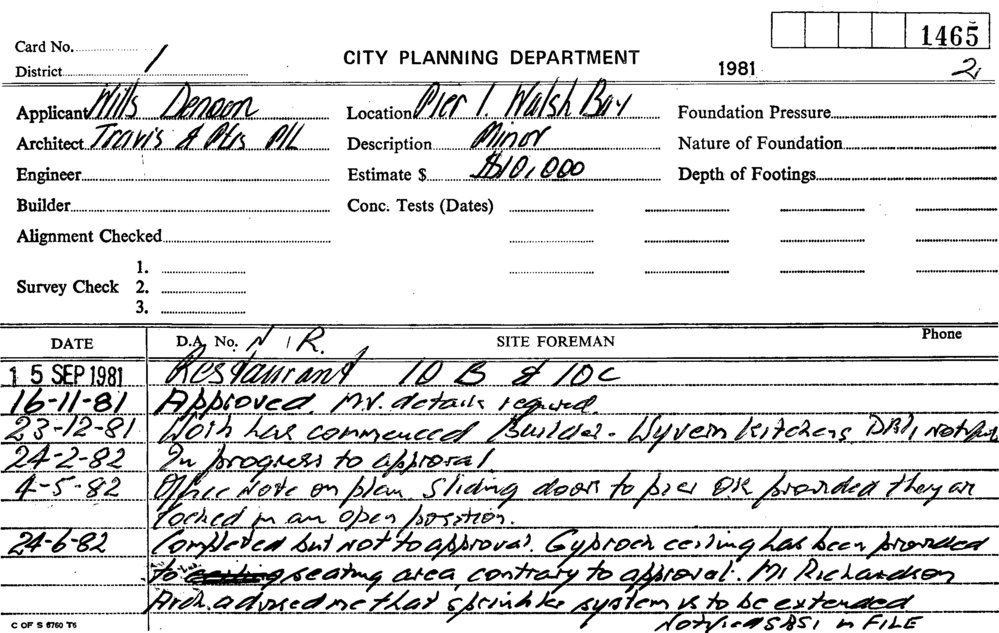 1465
Card No. 1
District
CITY PLANNING DEPARTMENT
1981
2
Applicant Wills Denoon
Location Pier 1. Walsh Bay
Foundation Pressure
Architect Travis & Ptrs P/L
Description Minor
Nature of Foundation
Engineer
Estimate $ $10,000
Depth of Footings
Builder
Conc. Tests (Dates)
Alignment Checked
1.
Survey Check 2.
3.
DATE D.A. No. N I R. SITE FOREMAN Phone
15 SEP 1981 Restaurant 10 B & 10C
16-11-81 Approved. M.V. details required.
23-12-81 Work has commenced Builder - Wyvern Kitchens
24-2-82 In progress to approval
4-5-82 Office Note on plan. Sliding doors to pier OK provided they are
locked in an open position.
24-6-82 Completed but not to approval. Gyprock ceiling has been provided
to seating area contrary to approval. Mr Richardson
Arch. advised me that sprinkler system is to be extended
FILE
C OF S 6760 T6